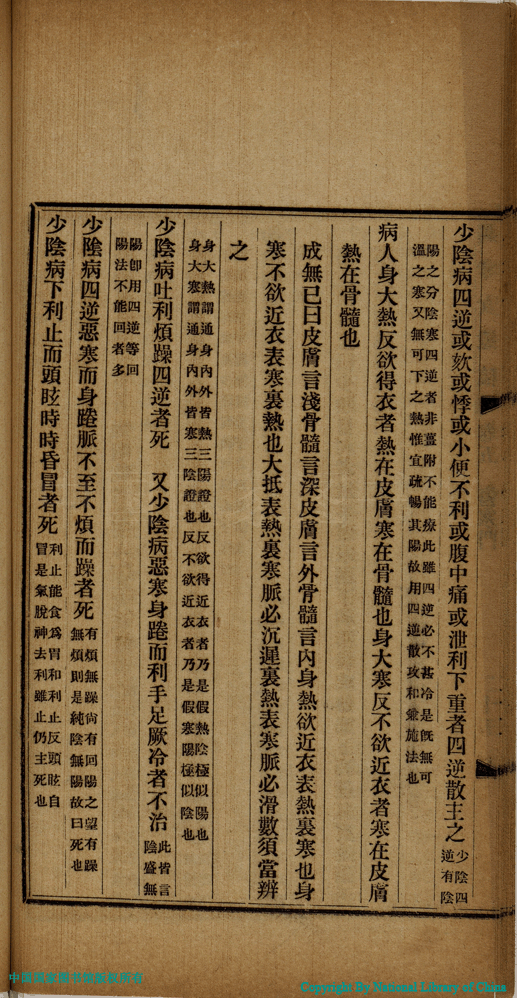 少陰病四逆或欬或悸或小便不利或腹中痛或泄利下重者四逆散主之少陰四逆有陰
陽之分陰寒四逆者非薑附不能療此雖四逆必不甚冷是旣無可
溫之寒又無可下之熱惟宜疏暢其陽故用四逆散攻和兼施法也
病人身大熱反欲得衣者熱在皮膚寒在骨髓也身大寒反不欲近衣者寒在皮膚
熱在骨髓也
成無已曰皮膚言淺骨髓言深皮膚言外骨髓言內身熱欲近衣表熱裏寒也身
寒不欲近衣表寒裏熱也大抵表熱裏寒脈必沉遲裏熱表寒脈必滑數須當辨
之
身大熱謂通身內外皆熱三陽證也反欲得近衣者乃是假熱陰極似陽也
身大寒謂通身內外皆寒三陰證也反不欲近衣者乃是假寒陽極似陰也
少陰病吐利煩躁四逆者死 又少陰病惡寒身踡而利手足厥冷者不治此皆言陰盛無
陽卽用四逆等回
陽法不能回者多
少陰病四逆惡寒而身踡脈不至不煩而躁者死有煩無躁尙有回陽之望有躁
無煩則是純陰無陽故曰死也
少陰病下利止而頭眩時時昏冒者死利止能食爲胃和利止反頭眩自
冒是氣脫神去利雖止仍主死也
中国国家图书馆版权所有
Copyright By National Library of China